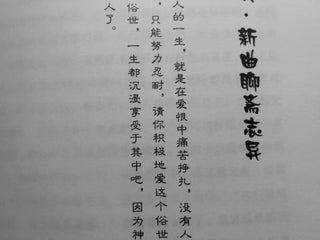 ·新曲聊斋志异
人的一生，就是在爱恨中痛苦挣扎，没有人
，只能努力忍耐，请你积极地爱这个俗世
俗世，一生都沉浸享受于其中吧，因为神
人了。